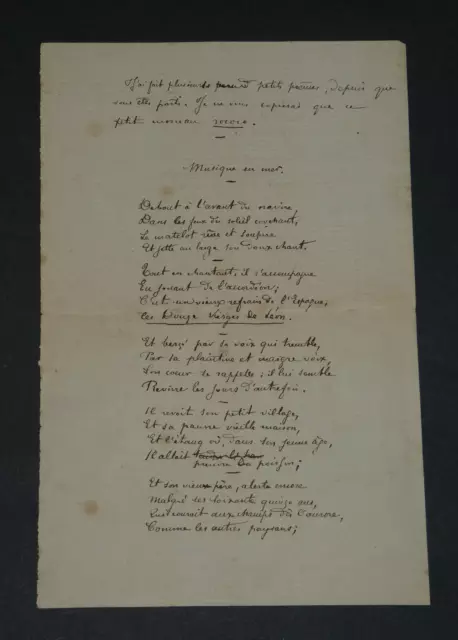 J'ai fait plusieurs petits poèmes, depuis que
vous êtes parti. Je ne vous copierai que ce
petit morceau rococo.
Musique en mer.
Debout à l'avant du navire,
Dans les feux du soleil couchant,
Le matelot rêve et soupire
Et jette au large son doux chant.
Tout en chantant, il s'accompagne
En jouant de l'accordéon;
C'est un vieux refrain de l'Espagne,
Les Douze Vierges de Léon.
Et bercé par sa voix qui tremble,
Par sa plaintive et maigre voix,
Son cœur se rappelle; il lui semble
Revivre les jours d'autrefois.
Il revoit son petit village,
Et sa pauvre vieille maison,
Et l'étang où, dans son jeune âge,
Il allait
prendre du poisson;
Et son vieux père, alerte encore
Malgré ses soixante quinze ans,
Qui courait aux champs dès l'aurore,
Comme les autres paysans;